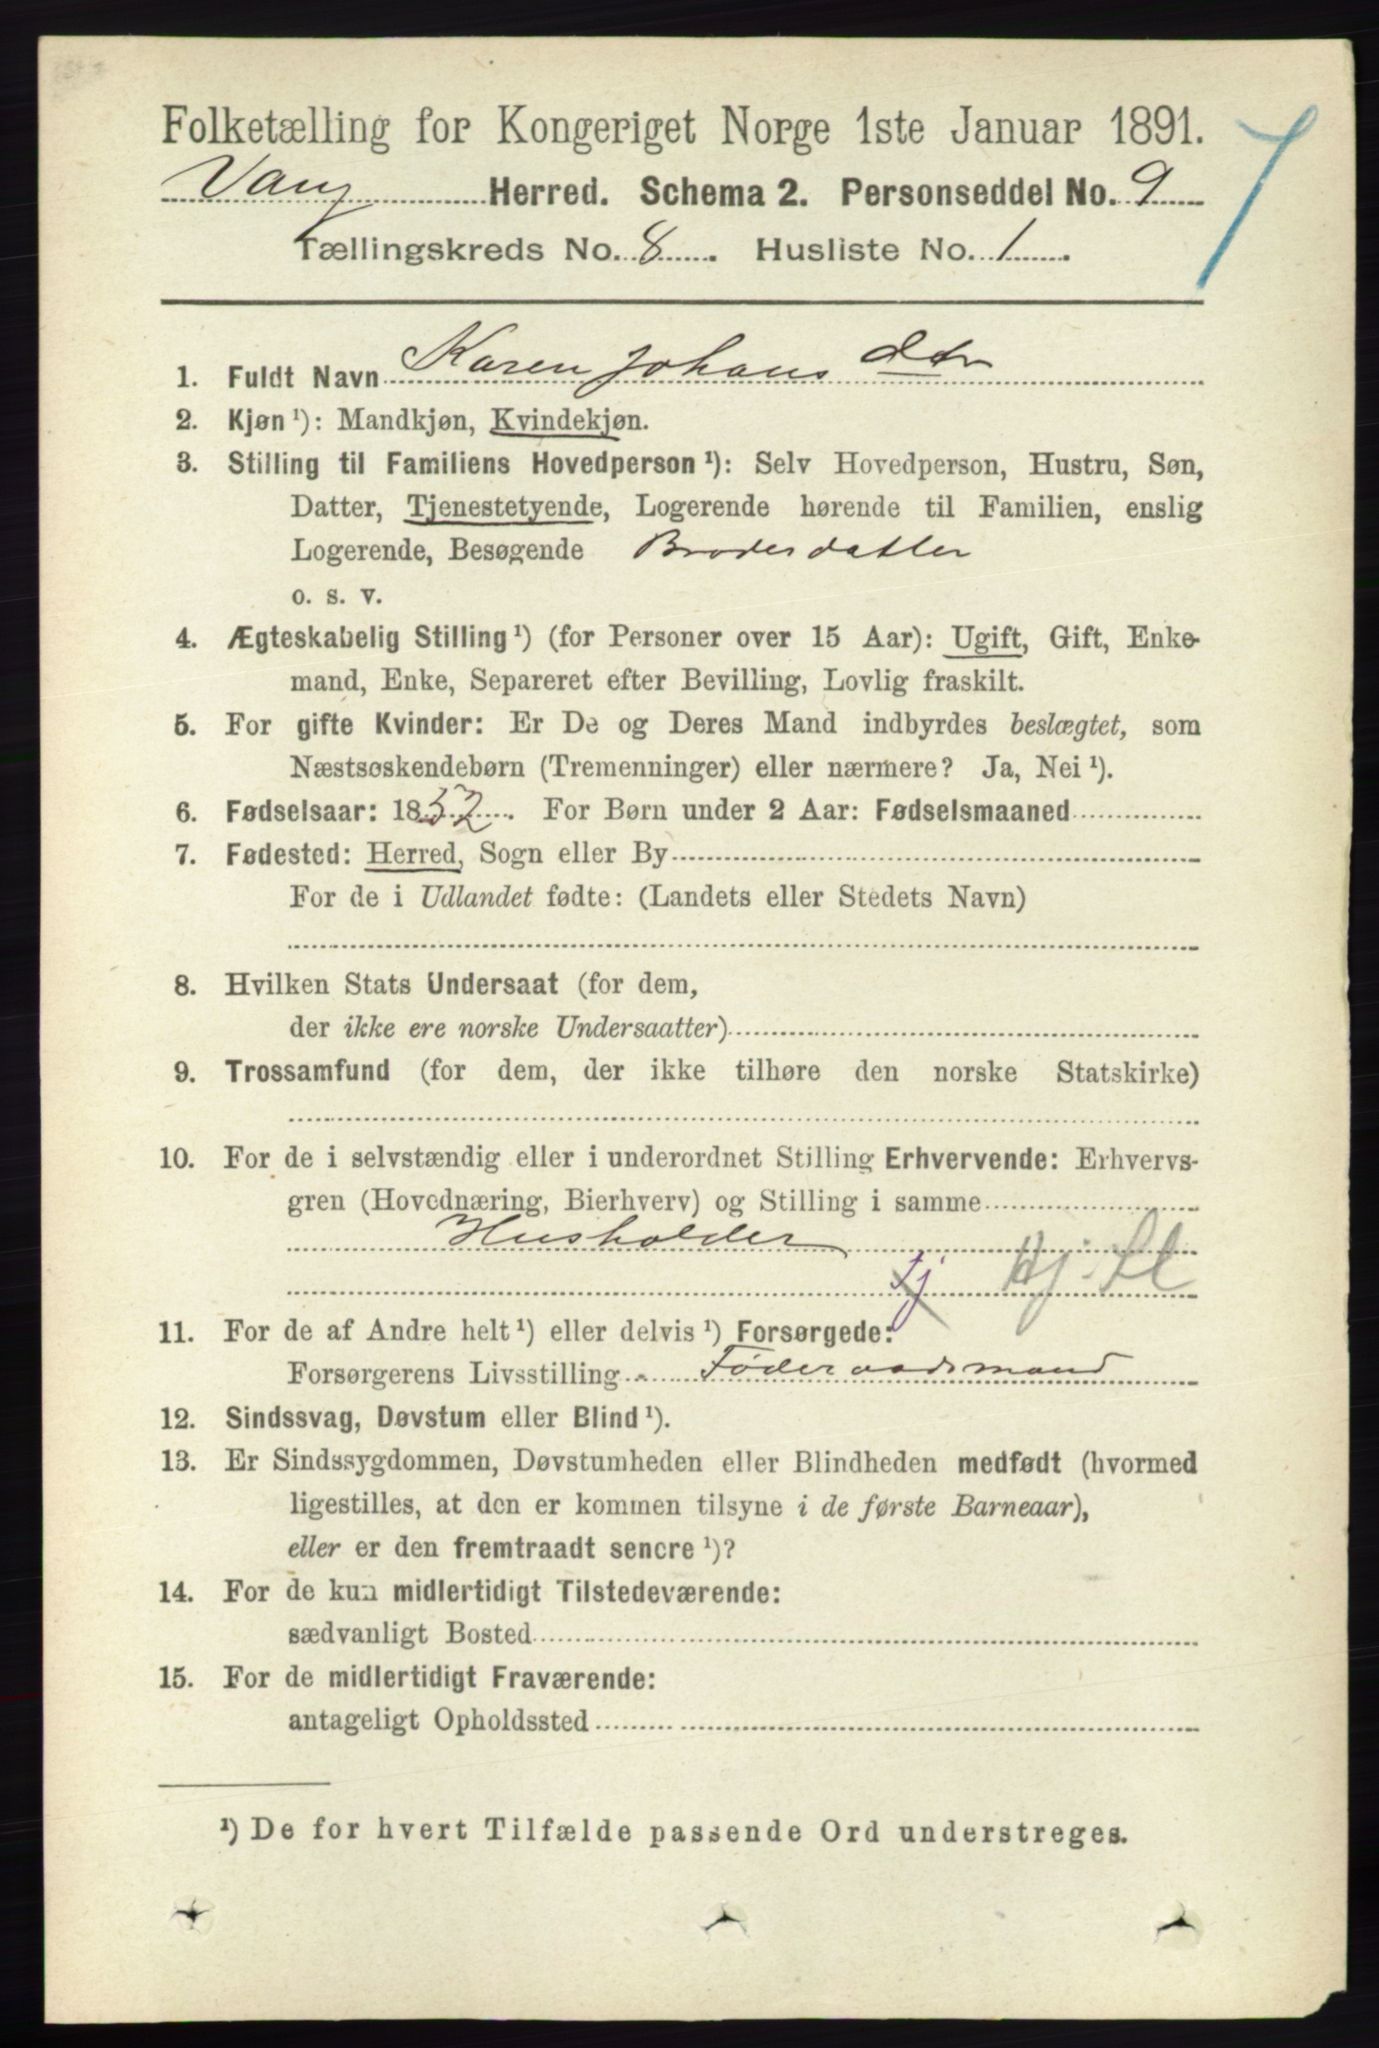 Folketælling for Kongeriget Norge 1ste Januar 1891.
Vang Herred. Schema 2. Personseddel No. 9
Tællingskreds No. 8. Husliste No. 1.
1. Fuldt Navn Karen Johans dtr
2. Kjøn ¹): Mandkjøn, Kvindekjøn.
3. Stilling til Familiens Hovedperson ¹): Selv Hovedperson, Hustru, Søn,
Datter, Tjenestetyende, Logerende hørende til Familien, enslig
Logerende, Besøgende Broderdatter
o. s. v.
4. Ægteskabelig Stilling ¹) (for Personer over 15 Aar): Ugift, Gift, Enke-
mand, Enke, Separeret efter Bevilling, Lovlig fraskilt.
5. For gifte Kvinder: Er De og Deres Mand indbyrdes beslægtet, som
Næstsøskendebørn (Tremenninger) eller nærmere? Ja, Nei ¹).
6. Fødselsaar: 1852. For Børn under 2 Aar: Fødselsmaaned
7. Fødested: Herred, Sogn eller By
For de i Udlandet fødte: (Landets eller Stedets Navn)
8. Hvilken Stats Undersaat (for dem,
der ikke ere norske Undersaatter)
9. Trossamfund (for dem, der ikke tilhøre den norske Statskirke)
10. For de i selvstændig eller i underordnet Stilling Erhvervende: Erhvervs-
gren (Hovednæring, Bierhverv) og Stilling i samme
Husholder
Tj
11. For de af Andre helt ¹) eller delvis ¹) Forsørgede:
Forsørgerens Livsstilling Føderaadsmand
12. Sindssvag, Døvstum eller Blind ¹).
13. Er Sindssygdommen, Døvstumheden eller Blindheden medfødt (hvormed
ligestilles, at den er kommen tilsyne i de første Barneaar),
eller er den fremtraadt senere ¹)?
14. For de kun midlertidigt Tilstedeværende:
sædvanligt Bosted
15. For de midlertidigt Fraværende:
antageligt Opholdssted
¹) De for hvert Tilfælde passende Ord understreges.